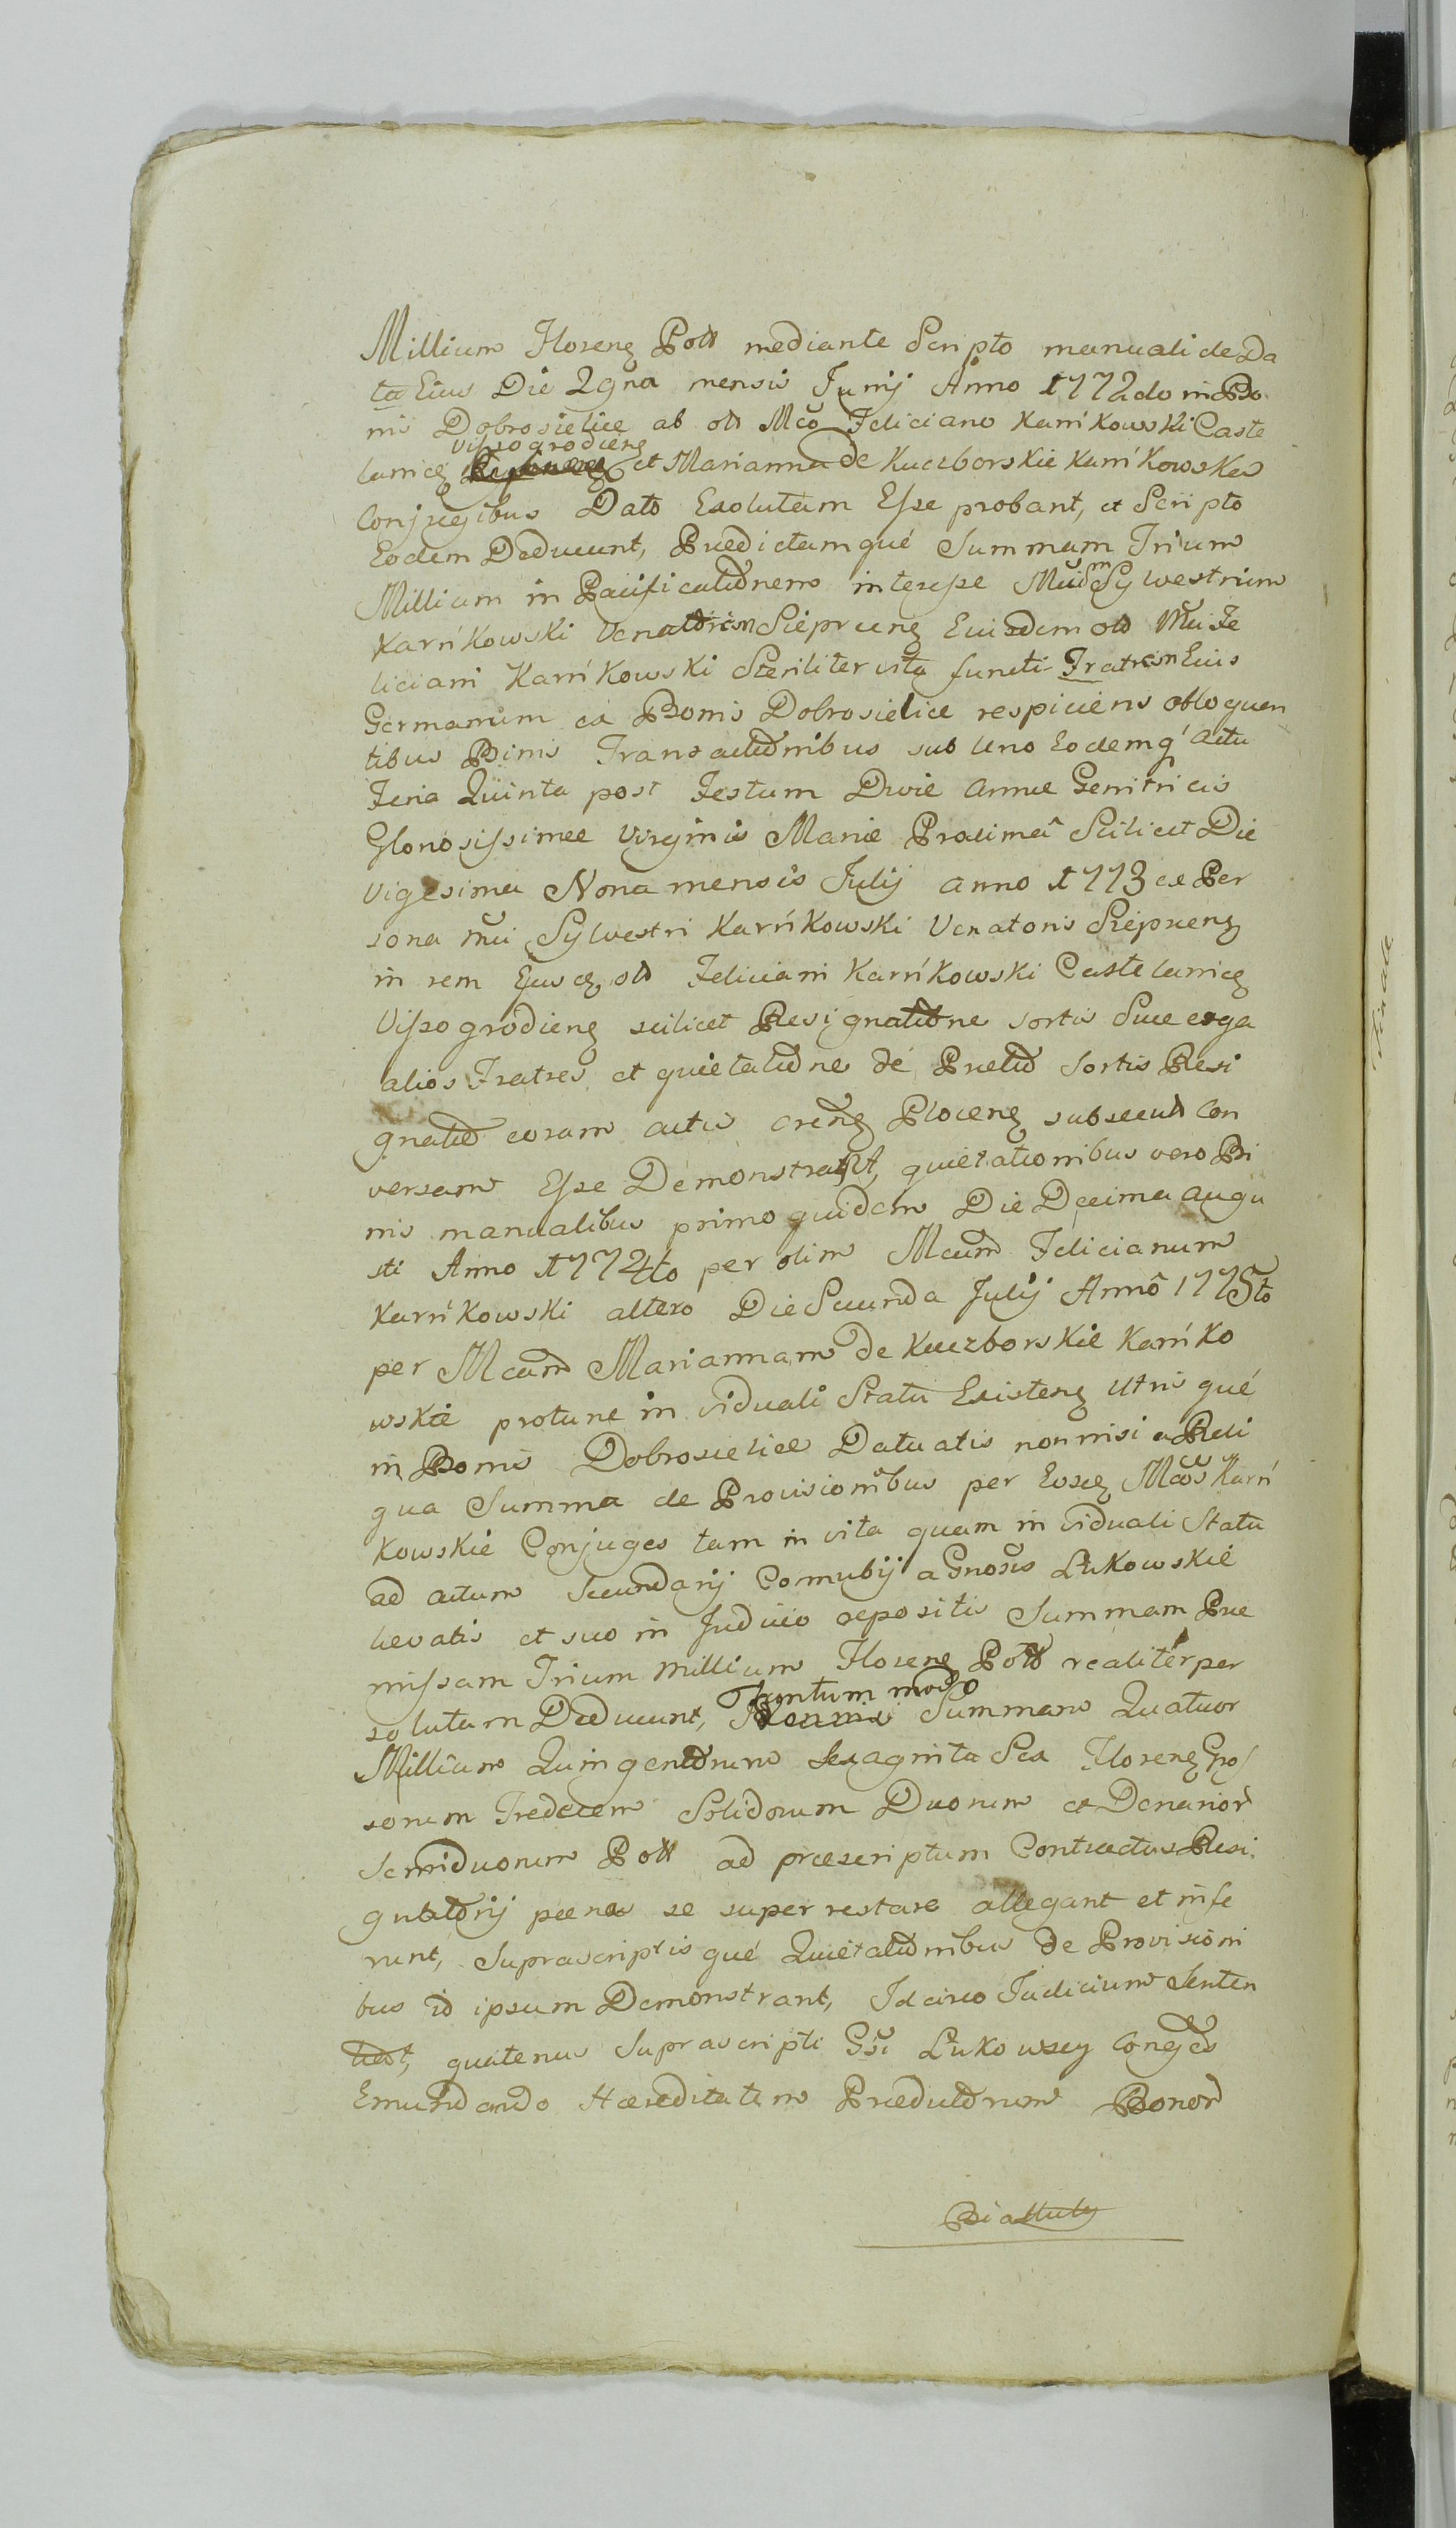 Millium Floreng Poll mediante Scripto manuali de Da
ta Eius Die 29na mensis Junij Anno 1772do in Bo
nis Dobrosielice ab olt Mco Feliciano Karńkowski Caste
Vissogrodieng
laniceg et Marianna de Kuczborskie Karńkowskie
Conjugibus Dato Exolutam Esse probant, et Scripto
Eodem Deducunt, Praedictamqué Summam Trium
Millium in Pacificationem interesse Mci Sylvestrium
Karńkowski Venatorem Sieprceng Eiusdem olt Mci Fe
liciani Karńkowski Steriliter vita functi Fratrem Eius
Germanum ex Bonis Dobrosielice respiciens obloquen
tibus Binis Transactionibus sub Uno Eodemq' Actu
Feria Quinta post Festum Divae Annae Genitricis
Gloriosissimae Virginis Mariae Proximâ Scilicet Die
Vigesima Nona mensis Julij Anno 1773 ex Per
sona Mci Sylvestri Karńkowski Venatoris Sieprceng
in rem Ejusdeg olt Feliciani Karńkowski Castelaniceg
Vissogrodieng scilicet Resignatione sortis Suae erga
alios Fratres et quietatione de Pretio Sortis Resi
gnatio coram actis Creng Ploceng subsecuto Con
versam Esse Demonstrant, quietationibus vero Bi
nis manualibus primo quidem Die Decima Augu
sti Anno 1774to per olim Mcum Felicianum
Karńkowski altero Die Secunda Julij Annô 1775to
per Mcam Mariannam de Kuczborskie Karńko
wskie protunc in viduali Statu Existeng Utrisqué
in Bonis Dobrosielice Datuatis nonnisi a Reli
qua Summa de Provisionibus per Eosdeg Mcos Karń
kowskie Conjuges tam in vita quam in viduali Statu
ad actum Secundarij Connubij a Gnosis Łukowskie
levatis et suo in Judicio repositis Summam Prae
missam Trium Millium Floreng Poll realiter per
Tantum modo
solutam Deducunt, Summam Quatuor
Millium Quingentorum Sexaginta Sex Floreng Gros
sorum Tredecem Solidorum Duorum et Denarior
Semiduorum Poll ad praescriptum Contractus Resi
gnatorij penes se superrestare allegant et infe
runt, Suprascriptisqué Quietationibus de Provisioni
bus id ipsum Demonstrant, Idcirco Judicium Senten
tiat, quatenus Suprascripti Gsi Łukowscy Conges
Emundando Haereditatem Praedictorum Bonor